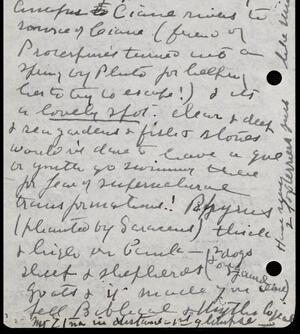 Ciane river to
source of Ciane (friend of
Proserpine turned into a
spring by Pluto for helping
her to try to escape!) & its
a lovely spot. clear & deep
& sea gardens & fish & stones
wouldn't dare to have a gue
or youth go swimming there
for fear of supernatural
transformation! Papyrus
(planted by Saracens) thick
& high on bank — 2 dogs
sheep & shepherds &
goats & it made you
feel Biblical & mythological
Mt Etna in distance